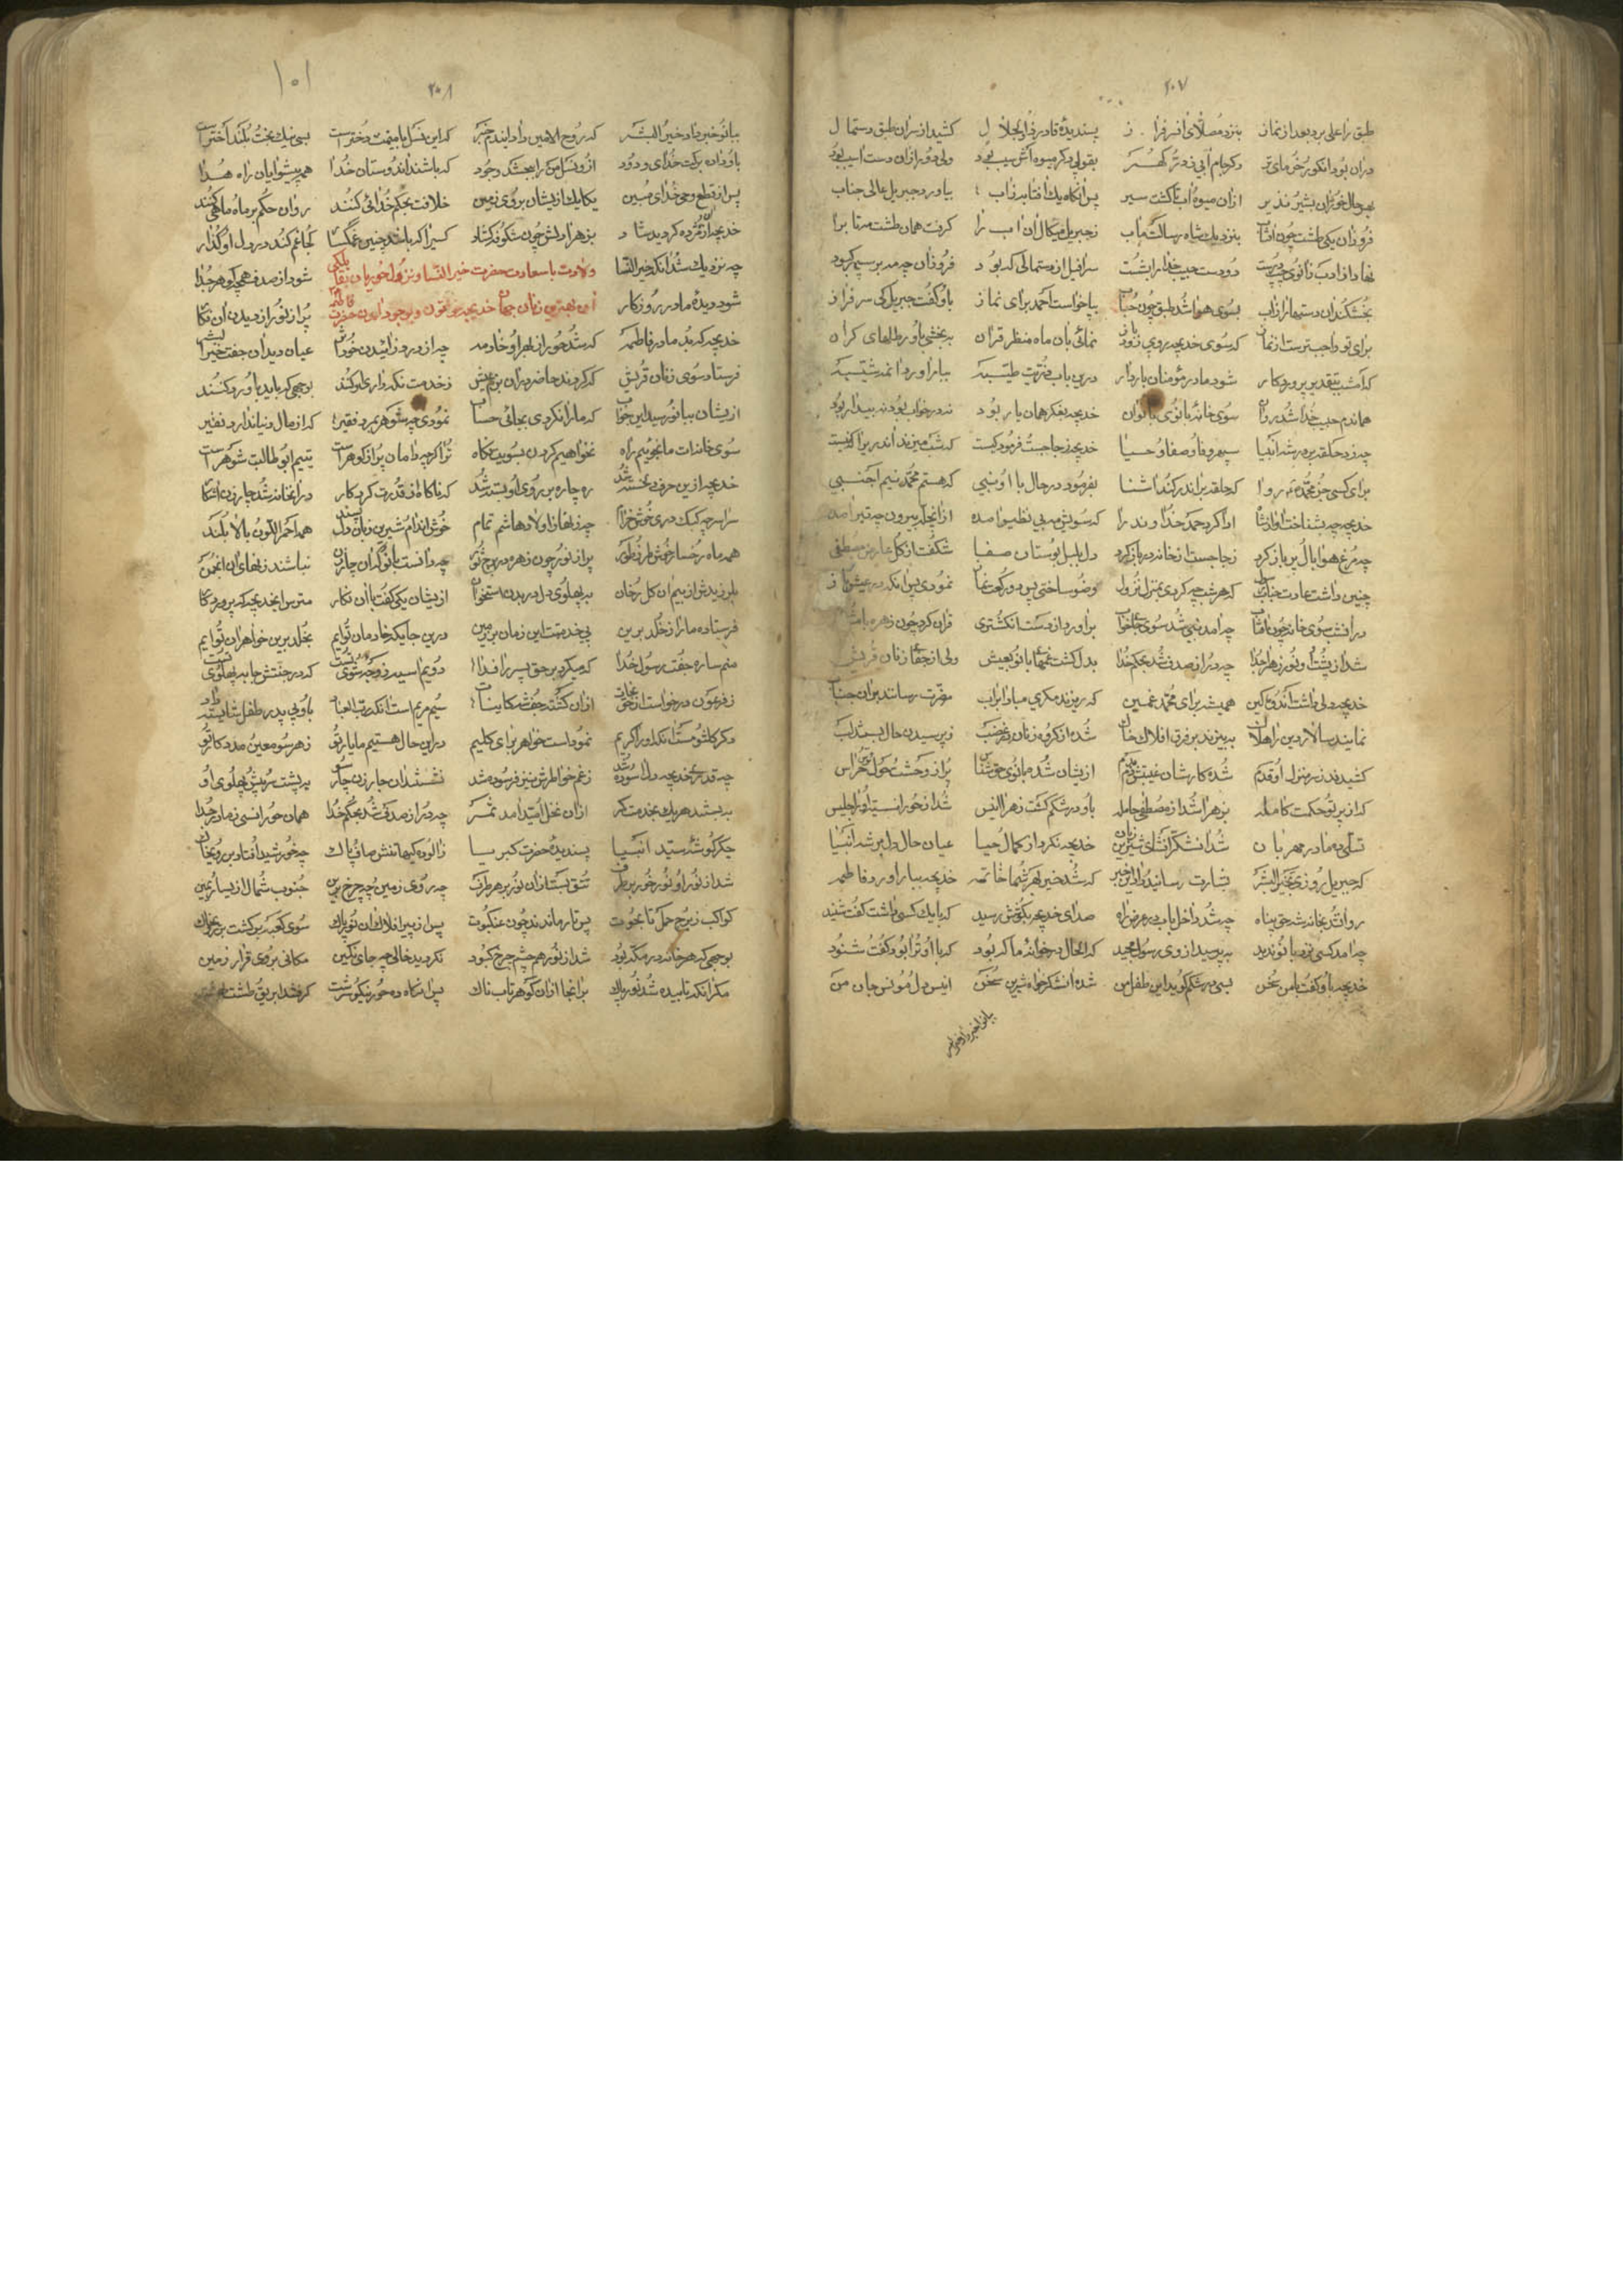 ۲۰۷
طبق را علی برد بعد از نماز بنزد مصلای پسندیدهٔ قادر ذوالجلال کشید از سران طبق دستمال
دران بود انکور خرمای تر دکر جام آبی ز در کهر بقولی دکر میوه اش سیب بود ولی دور ازان دست اسیب بود
بهر حال خوران بشیر نذیر ازان میوهٔ اب تا کشت سیر پس انکاه یک افتابه زاب بیاورد جبریل عالی جناب
فروزان یکی طشت چون افتاب بنزدیک شاه رسالت ماب ز جبریل میکال ان اب را کرفت همان طشت مهتاب را
نهاد از ادب زانوی دو دست حبیب خدا را بشست سرافیل از دستمالی که بود فروزان چه مه بر سپهر کبود
بخشکند ان دستها را ز اب بسوی هوا شد طبق چون حباب بپا خواست احمد برای نماز باو کفت جبریل کی سرفراز
برای تو واجبترست از نماز که سوی خدیجه روی نمائی بان ماه منظر قران به بخشی باو رطلهای کران
که امشب بتقدیر پروردکار شود مادر مؤمنان باردار درین باب ذریت طیبه بیار اورد
هماندم حبیب خدا شد روان سوی خانهٔ بانوی بانوان خدیجه بفکر همان یار بود نه در خواب بود نه بیدار بود
چه زد حلقه بر در شه انبیا سپهر وفا و صفا و حیا خدیجه ز جا جست فرمود کیست که شب میزند
برای کسی جز محمد روا که حلقه براند کند اشنا بفرمود در حال با او نبی که هستم محمد نیم اجنبی
خدیجه چه بشناخت اواز شاه ادا کرد حمد خداوند را که سویش مه بی نظیر امده
چه مرغ هوا بال پر باز کرد ز جا جست از خانه در باز کرد دل بلبل بوستان صفا شکفت از کل عارض مصطفی
چنین داشت عادت که هر شب چه کردی بمنزل نزول وضو ساختی پس دو رکعت نماز نمودی پس انکه
درانشب سوی خانه چون چه امد نبی شد سوی براورد از دست انکشتری قران کرد چون زهره با مشتری
شد از پشت او نور زهرا جدا چه در از صدف شد بحکم خدا بدل کشت غمهای بانو بعیش ولی از جفای زنان قریش
خدیجه دلی داشت همیشه برای محمد غمین که ریزند مکری مضرت رسانند بران جناب
نمایند سالار دین را هلاک به بیزند بر فرق افلاک خاک شده از کروه زنان ز پرسیدن حال بستند لب
کشیدند زیر منزل او قدم شده کارشان ازیشان شده بانوی حق شناس پر از وحشت
که از پرتو حکمت کامله بزهرا شد از مصطفی حامله باو در شکم کشت زهرا انیس شد از حور انسیه او را جلیس
تسلی ده مادر مهربان شد از شکر افشای شیرین زبان خدیجه نکرد از کمال حیا عیان حال دل بر شه انبیا
که جبریل روزی بخیر البشر بشارت رسانید داد این خبر که شد خیر بهر شما خاتمه خدیجه بیار اورد فاطمه
روان شد بخانه شه حق پناه چه شد داخل باب صدای خدیجه بکوشش رسید که با یک کسی داشت کفت شنید
چه امد کسی نزد بانو ندید به پرسید از وی رسول مجید که الحال در خانهٔ ما که بود که با او ترا بود کفت شنود
خدیجه باو کفت با من سخن بسی در شکم کوید این طفل من شده انس دل مونس جان من
۱۰۱
۲۰۸
ببانو خبر داد خیر البشر که روح الامین داد ایندم خبر که این نسل بسی نیک بخت بلند اخترست
باو زان برکت خدای ودود ازو نسل من را ببخشد وجود که باشند اند دوستان خدا همه پیشوایان راه هدا
پس از قطع وحی خدای مبین یکایک ازیشان بروی زمین خلافت بحکم خدائی کنند روان حکم بر ماه ماهی کنند
خدیجه ازان مژده کردید شاد بزهرا دلش چون شکوفه کشاد کسیرا که باشد چنین غمکسار کجا غم کند در دل او کذار
چه نزدیک شد انکه خیر النسا شود از صدف همچه کوهر جدا
ولادت با سعادت حضرت خیر النسا و نزول حوریان
شود دیدهٔ مادر روزکار پر از نور از دیدن ان نکار
خدیجه که بد مادر فاطمه که شد حور از بهر او خادمه چه از درد زائیدن عیان دید ان جفت خیر البشر
فرستاد سوی زنان قریش که کردند حاضر ز خدمت نکهداری او کنند بوجهی که باید باو رو کنند
ازیشان ببانو رسید این جواب که ما را نکردی بجائی حساب نمودی چه شوهر بمرد فقیر که از مال دنیا ندارد نقیر
سوی خانه ات ما نجوئیم راه نخواهیم کردن بسویت نکاه ترا کر چه دامان پر از کوهرست یتیم ابو طالبت شوهرست
خدیجه ازین حرف دلخسته شد ره چاره بر روی او بسته شد که ناکاه از قدرت کردکار دران خانه شد چار زن اشکار
سراسر چه کبک دری خوش خرام چه زنهای اولاد هاشم تمام خوش اندام شیرین زبان همه احمر اللون بالا بلند
همه ماه رخسار خوش طرز طور پر از نور چون زهره در برج ثور چه دانست بانو که ان چار زن نباشند زنهای ان انجمن
بلرزیدش از بیم ان کل رخان به پهلوی دل در بدن استخوان ازیشان یکی کفت با ان نکار مترس ای خدیجه که پروردکار
فرستاده ما را ز خلد برین پی خدمتت این زمان بر زمین درین جایکه خادمان توایم بخلد برین خواهران توایم
منم ساره جفت رسول خدا که میکرد بر حق پسر را فدا دویم اسیه که در جنتش جا به پهلوی تست
ز فرعون درخواست از حق نجات ازان کشته جفت سیم مریم است انکه رب العباد باو بی پدر طفل شایسته داد
دکر کلثومست انکه او را کریم نمودست خواهر برای کلیم درین حال هستیم ما یار تو ز هر سو معین مددکار تو
چه قدری خدیجه دل اسوده شد ز غم خواطرش نیز فرسوده شد نشستند ان چار زن چار سو به پشت سر پیش پهلوی او
به بستند هر یک بخدمت کمر ازان نخل امید امد ثمر چه در از صدف شد بحکم خدا همان حور انسی ز مادر جدا
جکر کوشهٔ سید انبیا پسندیدهٔ حضرت کبریا ز الوده کیها تنش صاف پاک چه خورشید افتاد بر روی خاک
شد از نور او نور خور بر طرف تتق بست ازان نور بر هر طرف چه روی زمین چه چرخ برین جنوب شمال از یسار یمین
کواکب ز برج حمل تا بحوت پس تار ماندند چون عنکبوت پس از سیر افلاک ان نور پاک سوی کعبه برکشت بر روی خاک
بوجهی که هر خانه در مکه بود شد از نور هم چشم چرخ کبود نکردید خالی چه جای نکین مکانی بروی قرار زمین
مکر انکه تابیده شد نور پاک بر انجا ازان کوهر تابناک پس انکاه ده حور نیکو سرشت کرفتند ابریق طشت بهشت